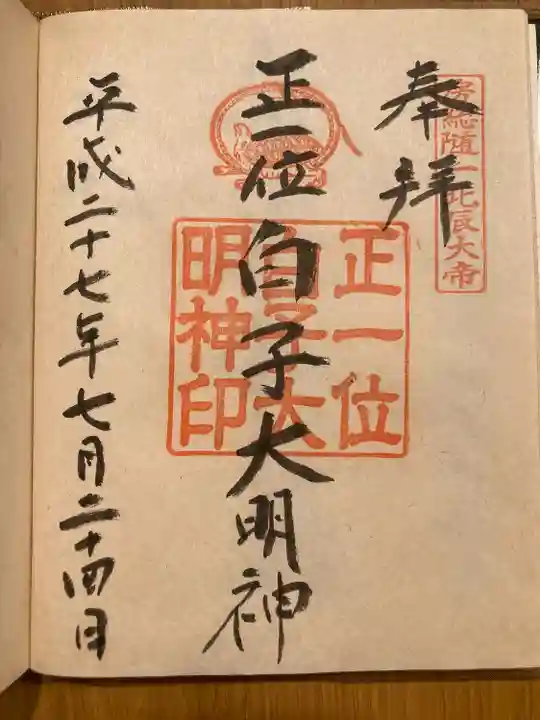 房総随一北辰大帝
奉拝
正一位白子大明神
正一位
白子大
明神印
平成二十七年七月二十四日